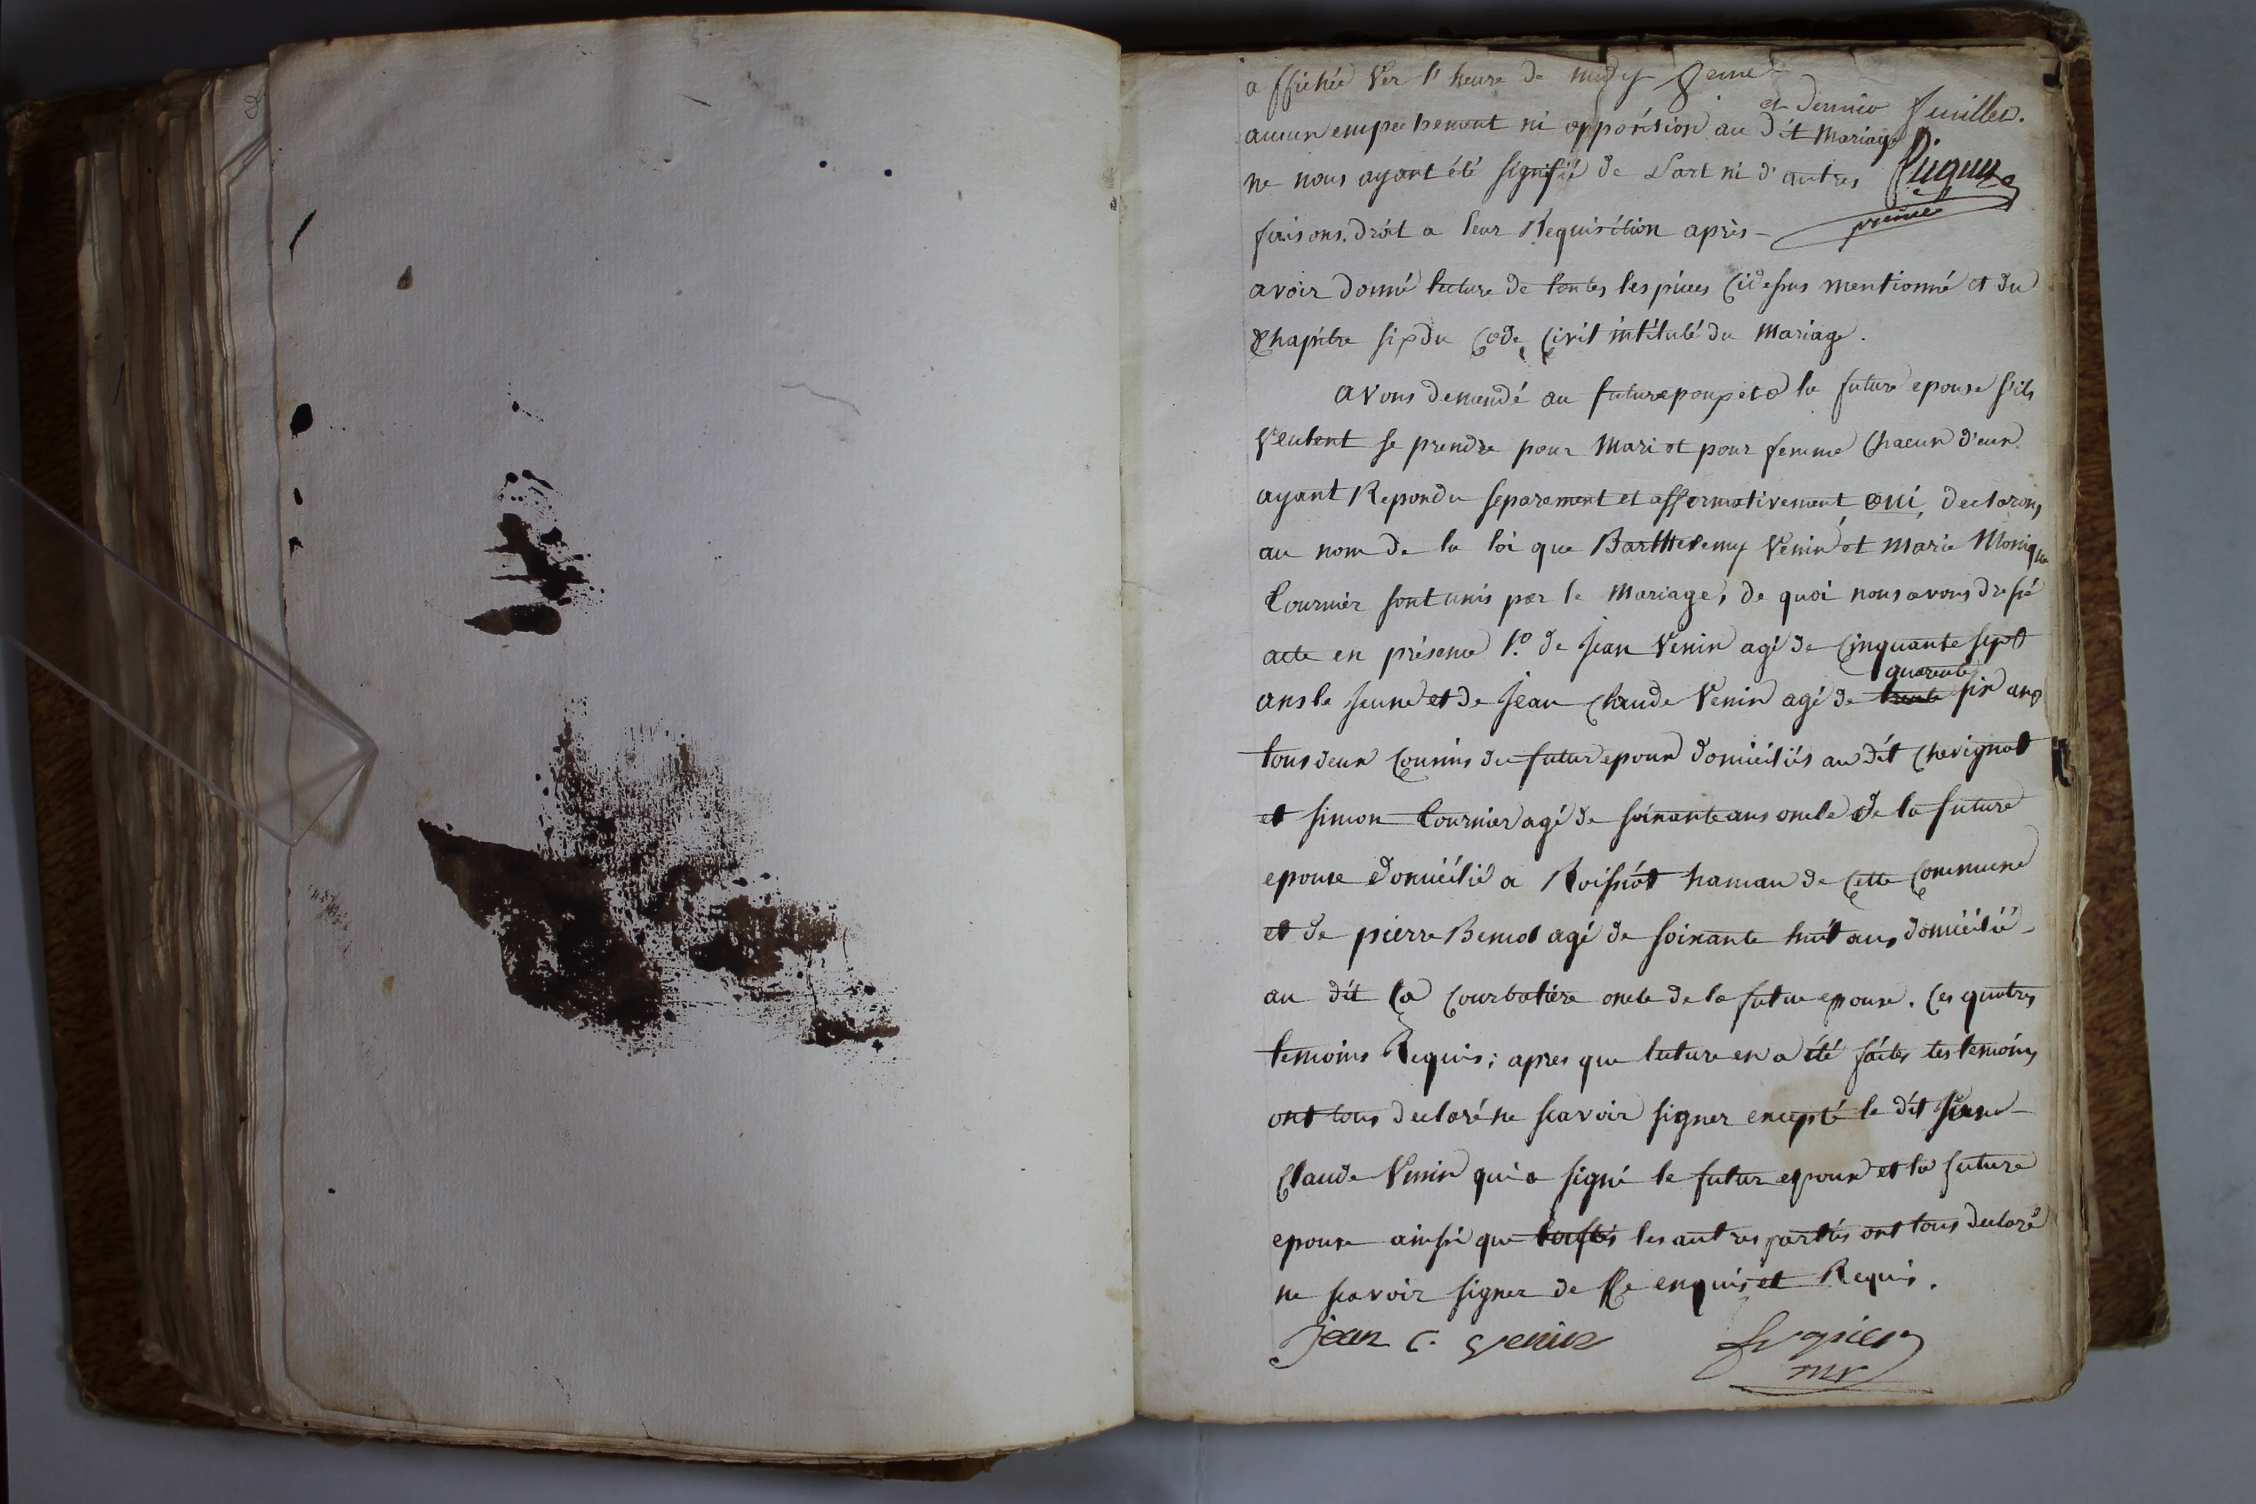 affichée Ver l'heure de midy 8eme
et dernier feuillet.
aucun empechement ni opposition au dit Mariage
ne nous ayant été signifié de Part ni d'autres
faisons droit a leur Requisition après
premier
avoir donné lecture de toutes les pieces Cidessus mentionné et du
Chapitre six du Code Civil intitulé du Mariage.
avons demandé au futur epoux et a la future epouse s'ils
Veulent se prendre pour Mari et pour femme Chacun d'eux
ayant Repondu separement et affermativement oui, declarons
au nom de la loi que Barthelemy Venin et Marie Monique
Cournier sont unis par le Mariage, de quoi nous avons dressé
acte en présence 1.º de Jean Venin agé de Cinquante sept
quarente
ans le Jeune et de Jean Claude Venin agé de trente six ans
tous deux Cousins du futur epoux domiciliés au dit Chevignat
et Simon Cournier agé de soixante ans oncle de la future
epouse domicilié a Roissiat hamau de Cette Commune
et de pierre Benoit agé de soixante huit ans domicilié
au dit La Courbatiere oncle de la future epouse. Ces quatres
temoins Requis; apres que lecture en a été faites les temoins
ont tous declaré ne scavoir signer excepté le dit Jean
Claude Venin qui a signé le futur epoux et la future
epouse ainsi que les autres parties ont tous declaré
ne scavoir signer de ce enquis et Requis.
Jean C. Venin